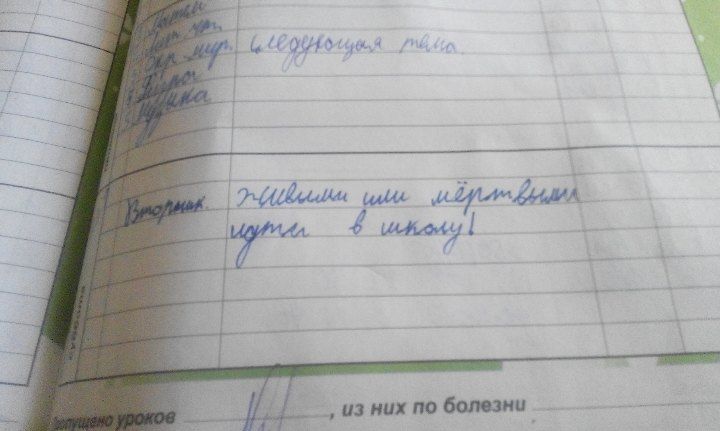 Матем
Лит. чт.
Окр. мир. следующая тема.
Музыка
Вторник. Живыми или мёртвыми
идти в школу!
суббота
Пропущено уроков , из них по болезни